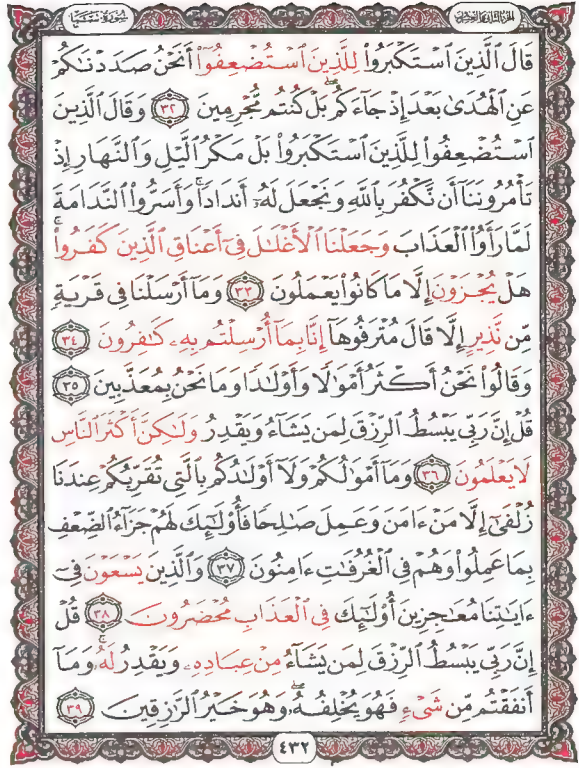 سورة سبأ
الجزء الثاني والعشرون
قَالَ ٱلَّذِينَ ٱسْتَكْبَرُوا۟ لِلَّذِينَ ٱسْتُضْعِفُوٓا۟ أَنَحْنُ صَدَدْنَٰكُمْ
عَنِ ٱلْهُدَىٰ بَعْدَ إِذْ جَآءَكُم ۖ بَلْ كُنتُم مُّجْرِمِينَ ٣٢ وَقَالَ ٱلَّذِينَ
ٱسْتُضْعِفُوا۟ لِلَّذِينَ ٱسْتَكْبَرُوا۟ بَلْ مَكْرُ ٱلَّيْلِ وَٱلنَّهَارِ إِذْ
تَأْمُرُونَنَآ أَن نَّكْفُرَ بِٱللَّهِ وَنَجْعَلَ لَهُۥٓ أَندَادًا ۚ وَأَسَرُّوا۟ ٱلنَّدَامَةَ
لَمَّا رَأَوُا۟ ٱلْعَذَابَ وَجَعَلْنَا ٱلْأَغْلَٰلَ فِىٓ أَعْنَاقِ ٱلَّذِينَ كَفَرُوا۟ ۚ
هَلْ يُجْزَوْنَ إِلَّا مَا كَانُوا۟ يَعْمَلُونَ ٣٣ وَمَآ أَرْسَلْنَا فِى قَرْيَةٍ
مِّن نَّذِيرٍ إِلَّا قَالَ مُتْرَفُوهَآ إِنَّا بِمَآ أُرْسِلْتُم بِهِۦ كَٰفِرُونَ ٣٤
وَقَالُوا۟ نَحْنُ أَكْثَرُ أَمْوَٰلًا وَأَوْلَٰدًا وَمَا نَحْنُ بِمُعَذَّبِينَ ٣٥
قُلْ إِنَّ رَبِّى يَبْسُطُ ٱلرِّزْقَ لِمَن يَشَآءُ وَيَقْدِرُ وَلَٰكِنَّ أَكْثَرَ ٱلنَّاسِ
لَا يَعْلَمُونَ ٣٦ وَمَآ أَمْوَٰلُكُمْ وَلَآ أَوْلَٰدُكُم بِٱلَّتِى تُقَرِّبُكُمْ عِندَنَا
زُلْفَىٰٓ إِلَّا مَنْ ءَامَنَ وَعَمِلَ صَٰلِحًا فَأُو۟لَٰٓئِكَ لَهُمْ جَزَآءُ ٱلضِّعْفِ
بِمَا عَمِلُوا۟ وَهُمْ فِى ٱلْغُرُفَٰتِ ءَامِنُونَ ٣٧ وَٱلَّذِينَ يَسْعَوْنَ فِىٓ
ءَايَٰتِنَا مُعَٰجِزِينَ أُو۟لَٰٓئِكَ فِى ٱلْعَذَابِ مُحْضَرُونَ ٣٨ قُلْ
إِنَّ رَبِّى يَبْسُطُ ٱلرِّزْقَ لِمَن يَشَآءُ مِنْ عِبَادِهِۦ وَيَقْدِرُ لَهُۥ ۚ وَمَآ
أَنفَقْتُم مِّن شَىْءٍ فَهُوَ يُخْلِفُهُۥ ۖ وَهُوَ خَيْرُ ٱلرَّٰزِقِينَ ٣٩
٤٣٢